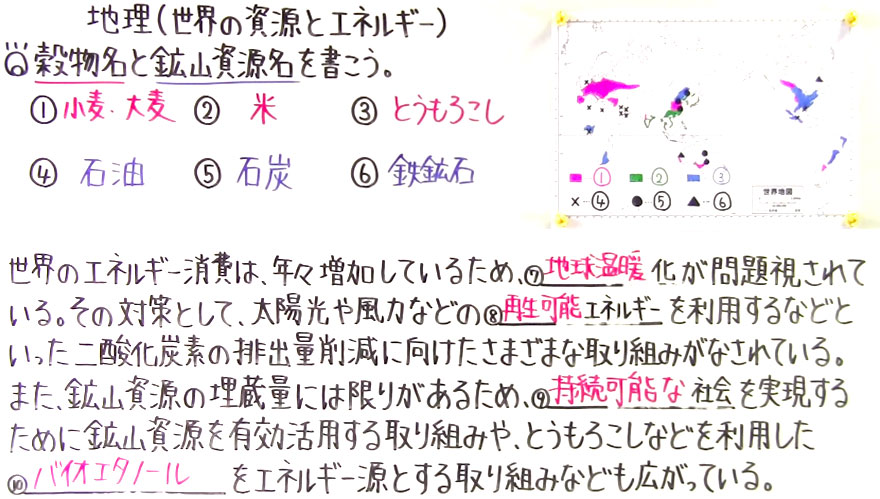 地理(世界の資源とエネルギー)
穀物名と鉱山資源名を書こう。
①小麦・大麦 ② 米 ③ とうもろこし
④ 石油 ⑤ 石炭 ⑥ 鉄鉱石
① ② ③
×…④ ●…⑤ ▲…⑥
世界地図
世界のエネルギー消費は、年々増加しているため、⑦地球温暖化が問題視されて
いる。その対策として、太陽光や風力などの⑧再生可能エネルギーを利用するなどと
いった二酸化炭素の排出量削減に向けたさまざまな取り組みがなされている。
また、鉱山資源の埋蔵量には限りがあるため、⑨持続可能な社会を実現する
ために鉱山資源を有効活用する取り組みや、とうもろこしなどを利用した
⑩バイオエタノールをエネルギー源とする取り組みなども広がっている。